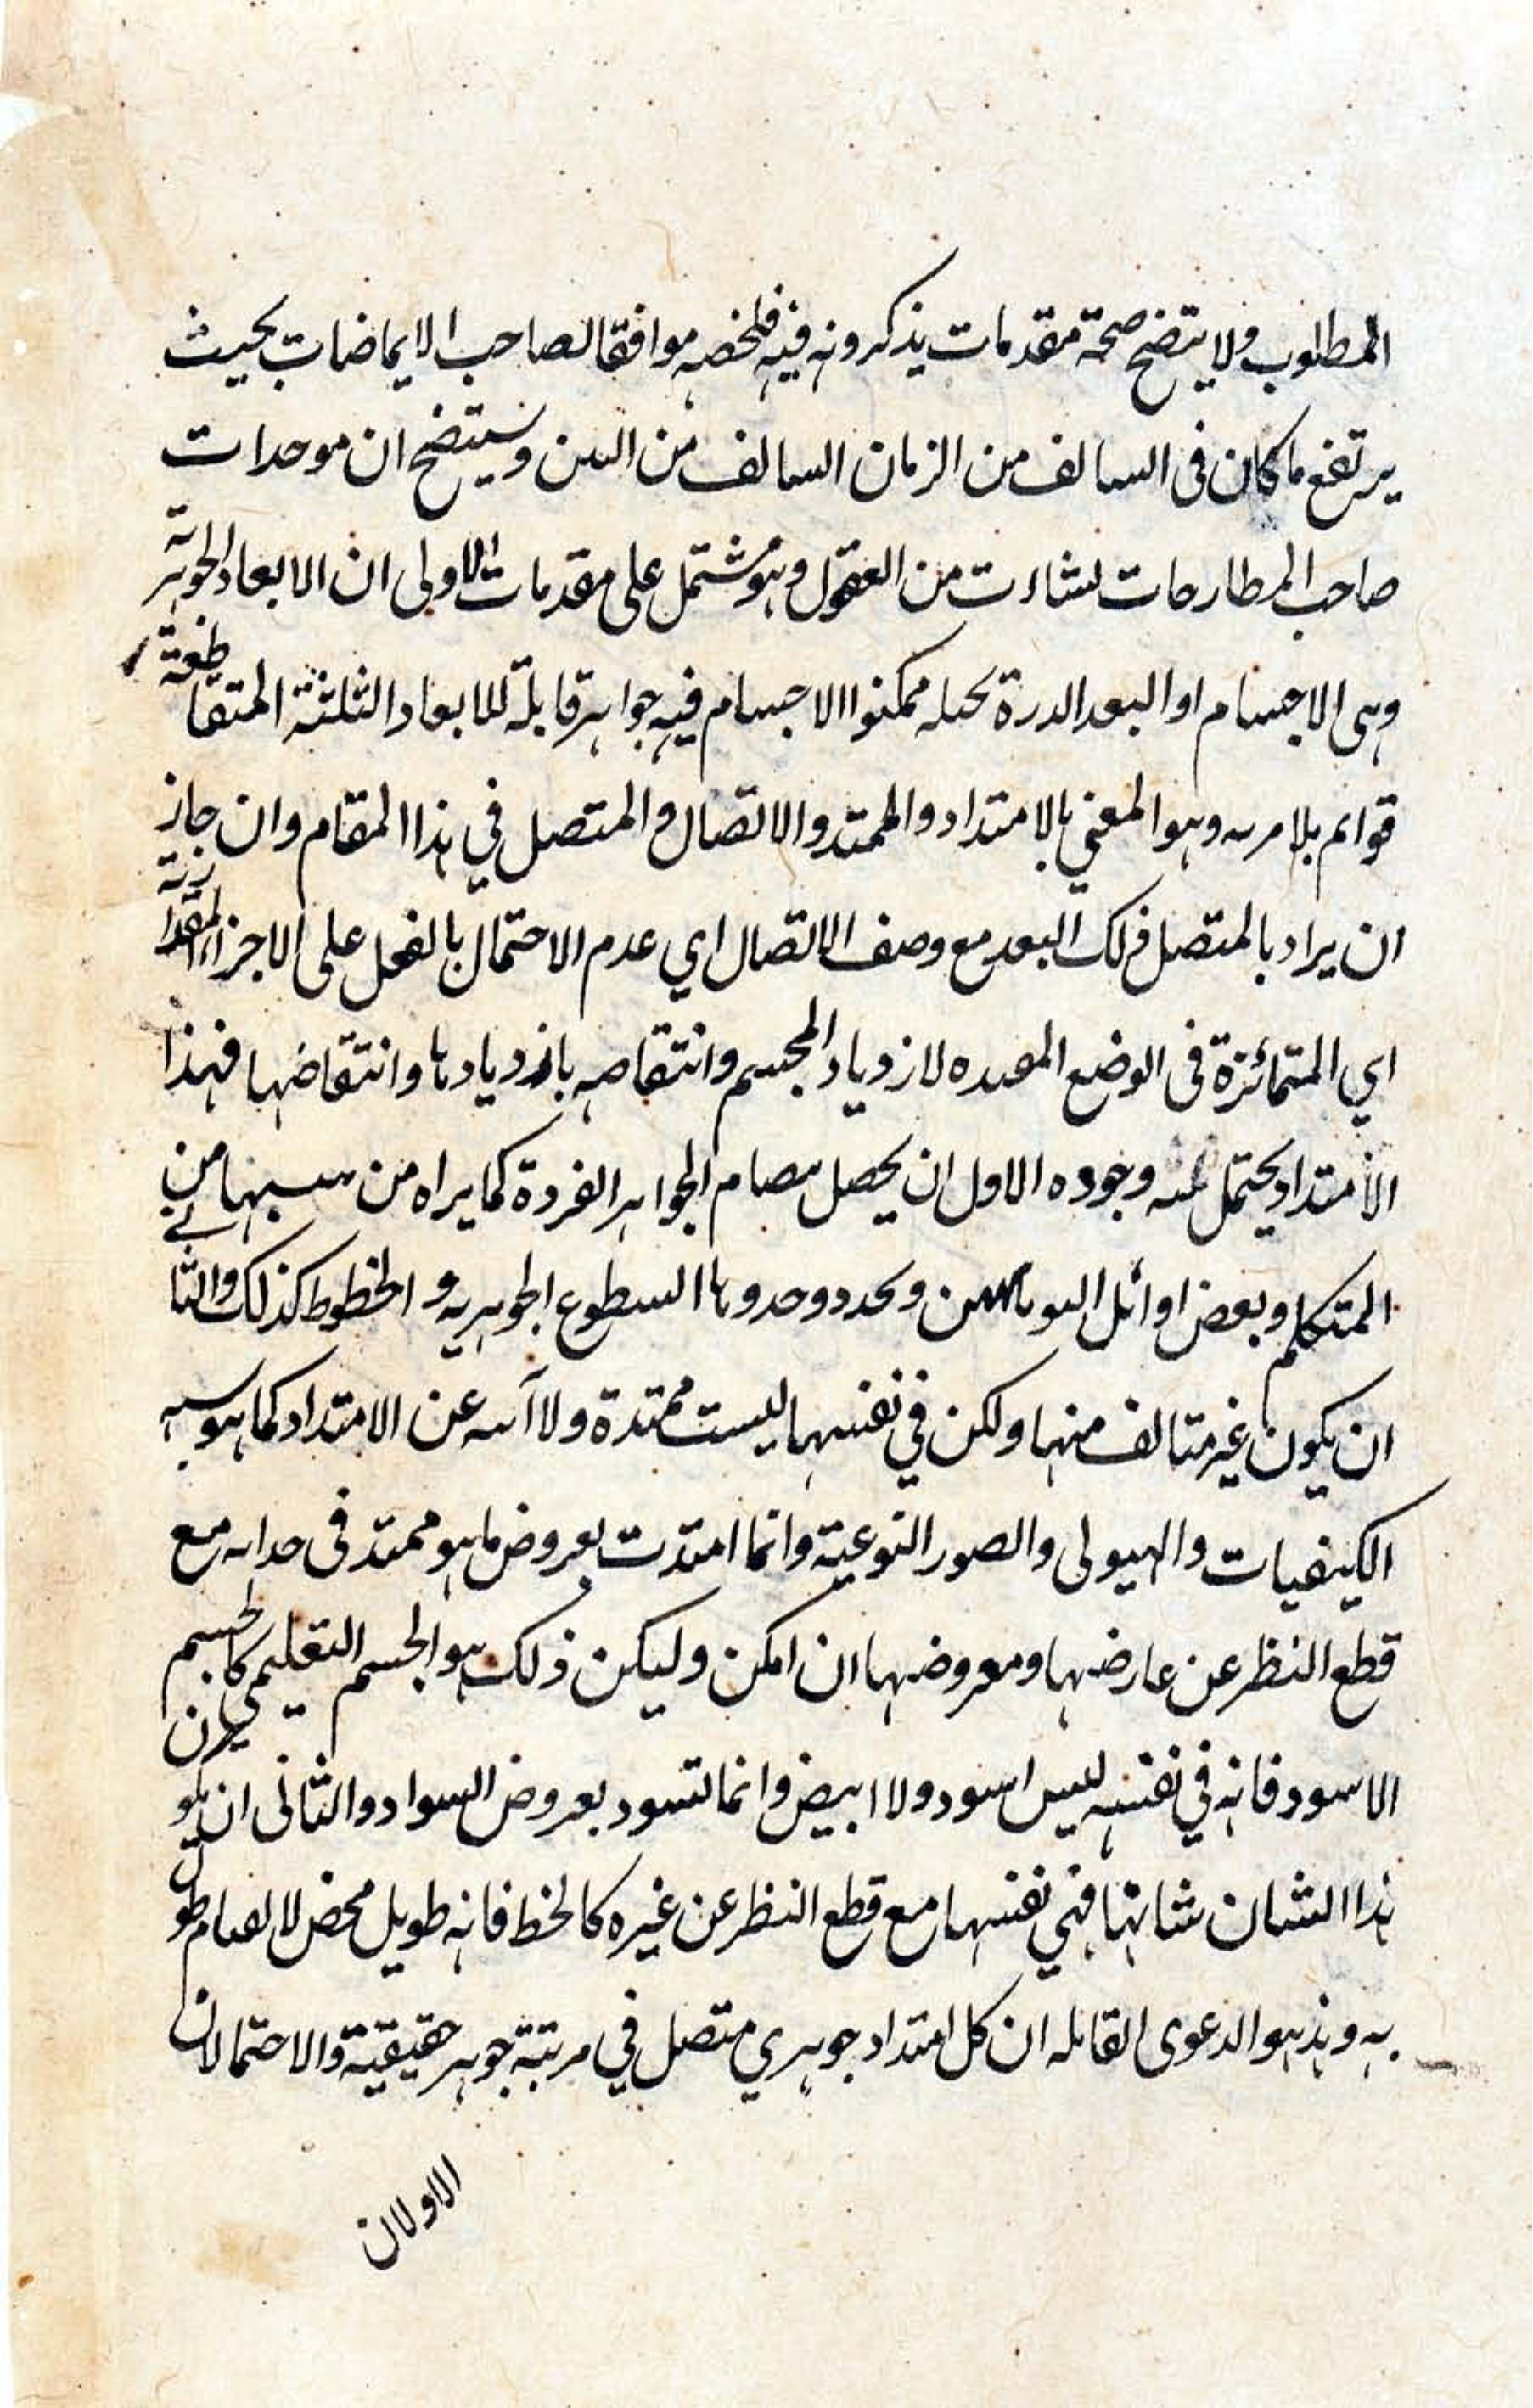 المطلوب ولا يتضح صحة مقدمات يذكرونه فيه فلخصه موافقا لصاحب الايماضات بحيث
يرتفع ما كان في السالف من الزمان السالف من البين وسيتضح ان موحدات
صاحب المطارحات نشاءت من العقول وهو مشتمل على مقدمات الاولى ان الابعاد الجوهرية
وهي الاجسام او البعد الدرة ممكنوا الاجسام فيه جواهر قابلة للابعاد الثلثة المتقاطعة
قوائم بلا مريه وهو المعني بالامتداد والممتد والاتصال والمتصل في هذا المقام وان جاز
ان يراد بالمتصل ذلك البعد مع وصف الاتصال اي عدم الاحتمال بالفعل على الاجزاء المقدارية
اي المتمائزة في الوضع لازدياد المجسم وانتقاصه بازديادها وانتقاضها فهذا
الامتداد يحتمل وجوده الاول ان يحصل الجواهر الفردة كما يراه من من
المتكلم وبعض اوائل وحدودها السطوع الجوهريه و الخطوط كذلك والثاني
ان يكون غير متالف منها ولكن في نفسها ليست ممتدة ولا آبيه عن الامتداد كما هو
الكيفيات والهيولى والصور النوعية وانما امتدت بعروض ما هو ممتد في حداته مع
قطع النظر عن عارضها ومعروضها ان امكن وليكن ذلك هو الجسم التعليمي كالجسم
الاسود فانه في نفسه ليس اسود ولا ابيض وانما تسود بعروض السواد والثانى ان يكون
هذا الشان شانها في نفسها مع قطع النظر عن غيره كالخط فانه طويل محض لا لقيام طول
به وهذ هو الدعوى القائله ان كل امتداد جوهري متصل في مرتبة جوهر حقيقية والاحتمالان
الاولان